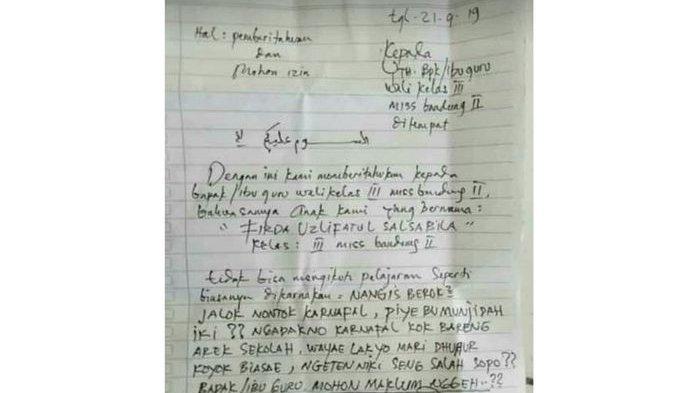 tgl. 21-9-19
Hal: pemberitahuan
dan
Mohon izin
Kepada
YTH. Bpk/ibu guru
wali kelas III
MISS bandung II
ditempat
السلام عليكم
Dengan ini kami memberitahukan kepada
bapak/ibu guru wali kelas III miss bandung II,
bahwasannya anak kami yang bernama:
" FIRDA UZLIFATUL SALSABILA "
Kelas: III miss bandung II
tidak bisa mengikuti pelajaran seperti
biasanya dikarnakan = NANGIS BEROK²
JALOK NONTOK KARNAFAL, PIYE BU MUNJIDAH
IKI ?? NGADAKNO KARNAFAL KOK BARENG
AREK SEKOLAH, WAYAE LAK YO MARI DHUHUR
KOYOK BIASAE, NGETEN NIKI SENG SALAH SOPO ??
BAPAK/IBU GURU MOHON MAKLUM NGGEH..??